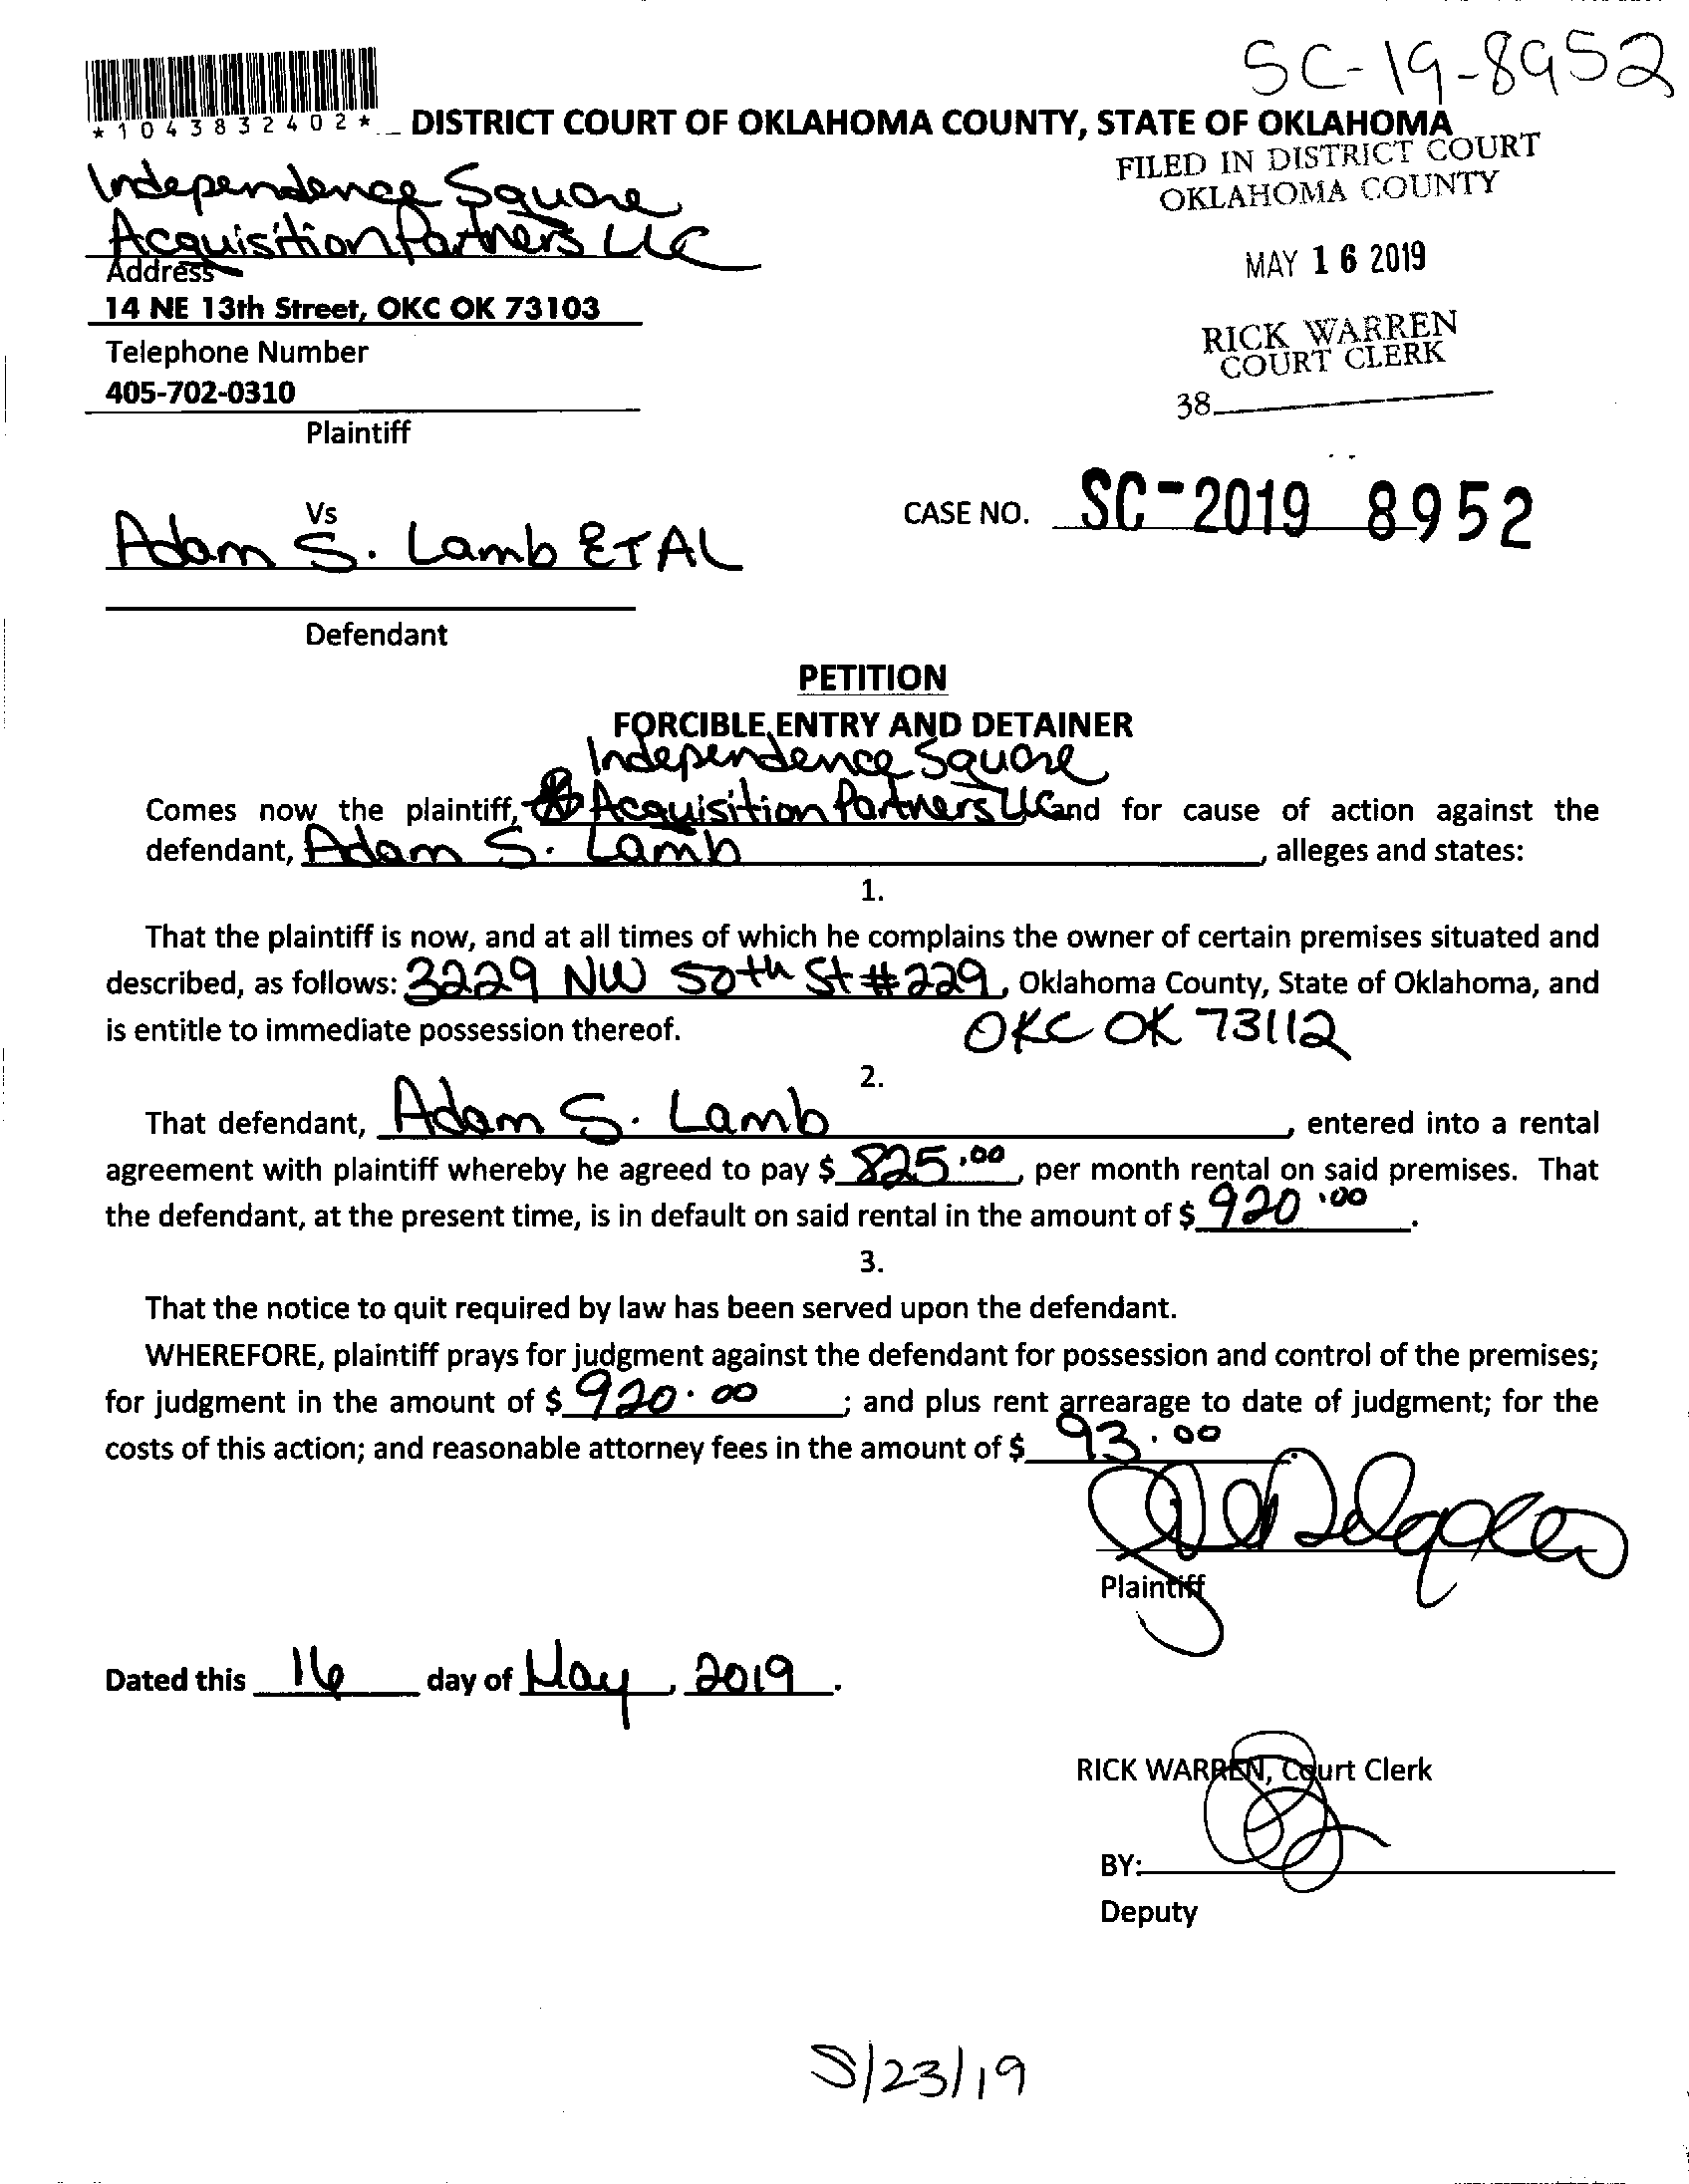 SC-19-8952
*1043832402*
DISTRICT COURT OF OKLAHOMA COUNTY, STATE OF OKLAHOMA
FILED IN DISTRICT COURT
OKLAHOMA COUNTY
MAY 16 2019
RICK WARREN
COURT CLERK
38
Independence Square
Acquisition Partners LLC
Address
14 NE 13th Street, OKC OK 73103
Telephone Number
405-702-0310
Plaintiff
Vs
Adam S. Lamb ETAL
CASE NO. SC-2019 8952
Defendant
PETITION
FORCIBLE ENTRY AND DETAINER
Independence Square
Comes now the plaintiff, Acquisition Partners LLC and for cause of action against the
defendant, Adam S. Lamb, alleges and states:
1.
That the plaintiff is now, and at all times of which he complains the owner of certain premises situated and
described, as follows: 3229 NW 50th St #229, Oklahoma County, State of Oklahoma, and
is entitle to immediate possession thereof. OKC OK 73112
2.
That defendant, Adam S. Lamb, entered into a rental
agreement with plaintiff whereby he agreed to pay $ 825.00, per month rental on said premises. That
the defendant, at the present time, is in default on said rental in the amount of $ 920.00.
3.
That the notice to quit required by law has been served upon the defendant.
WHEREFORE, plaintiff prays for judgment against the defendant for possession and control of the premises;
for judgment in the amount of $ 920.00; and plus rent arrearage to date of judgment; for the
costs of this action; and reasonable attorney fees in the amount of $ 93.00
Plaintiff
Dated this 16 day of May, 2019.
RICK WARREN, Court Clerk
BY:
Deputy
5/23/19